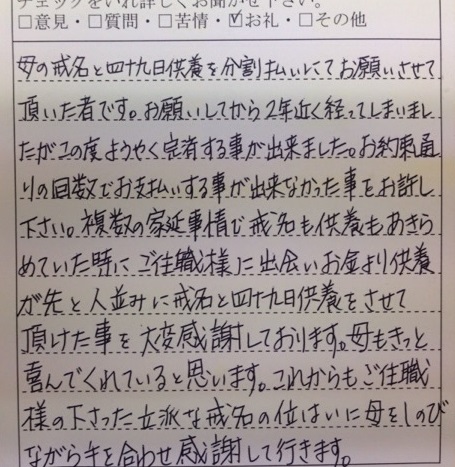 チェックをいれ詳しくお聞かせ下さい。
□意見・□質問・□苦情・☑お礼・□その他
母の戒名と四十九日供養を分割払いにてお願いさせて
頂いた者です。お願いしてから2年近く経ってしまいまし
たがこの度ようやく完済する事が出来ました。お約束通
りの回数でお支払いする事が出来なかった事をお許し
下さい。複数の家庭事情で戒名も供養もあきら
めていた時にご住職様に出会いお金より供養
が先と人並みに戒名と四十九日供養をさせて
頂けた事を大変感謝しております。母もきっと
喜んでくれていると思います。これからもご住職
様の下さった立派な戒名の位はいに母をしのび
ながら手を合わせ感謝して行きます。